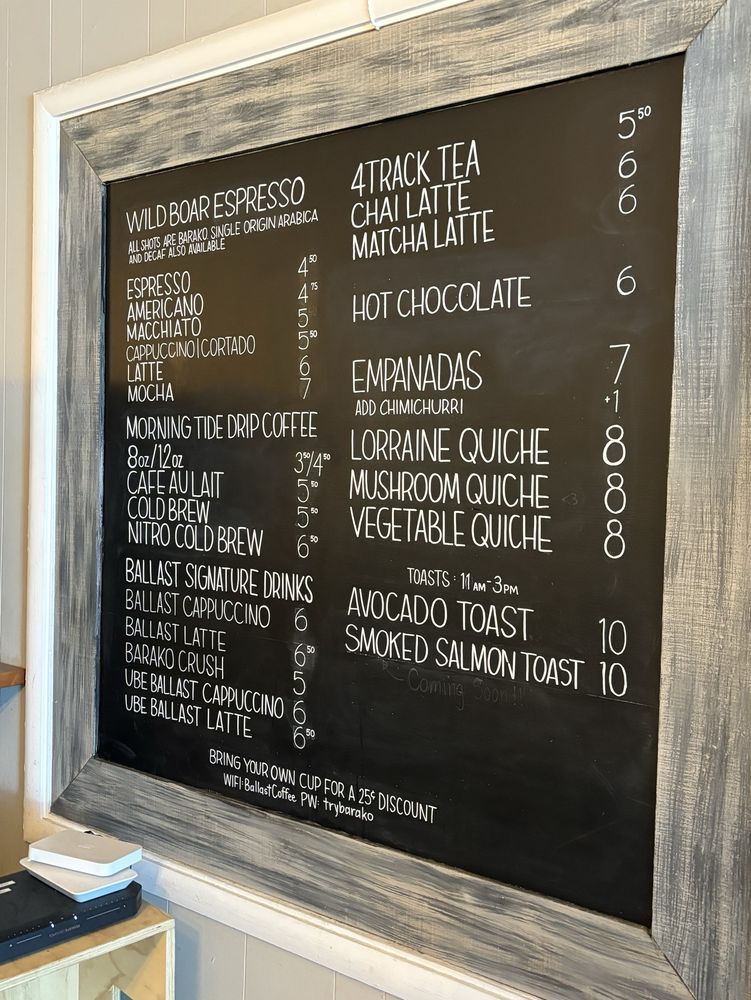 WILD BOAR ESPRESSO
ALL SHOTS ARE BARAKO. SINGLE ORIGIN ARABICA
AND DECAF ALSO AVAILABLE
ESPRESSO 4⁵⁰
AMERICANO 4⁷⁵
MACCHIATO 5
CAPPUCCINO|CORTADO 5⁵⁰
LATTE 6
MOCHA 7
MORNING TIDE DRIP COFFEE
8oz/12oz 3⁵⁰/4⁵⁰
CAFE AU LAIT 5⁵⁰
COLD BREW 5⁵⁰
NITRO COLD BREW 6⁵⁰
BALLAST SIGNATURE DRINKS
BALLAST CAPPUCCINO 6
BALLAST LATTE 6⁵⁰
BARAKO CRUSH 5
UBE BALLAST CAPPUCCINO 6
UBE BALLAST LATTE 6⁵⁰
4TRACK TEA 5⁵⁰
CHAI LATTE 6
MATCHA LATTE 6
HOT CHOCOLATE 6
EMPANADAS 7
ADD CHIMICHURRI +1
LORRAINE QUICHE 8
MUSHROOM QUICHE <3 8
VEGETABLE QUICHE 8
TOASTS: 11AM-3PM
AVOCADO TOAST 10
SMOKED SALMON TOAST 10
Coming Soon!!
BRING YOUR OWN CUP FOR A 25¢ DISCOUNT
WIFI: BallastCoffee PW: trybarako